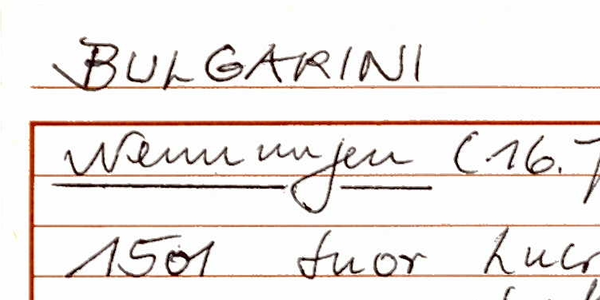 BULGARINI
Nennungen (16.
1501 suor Lucr